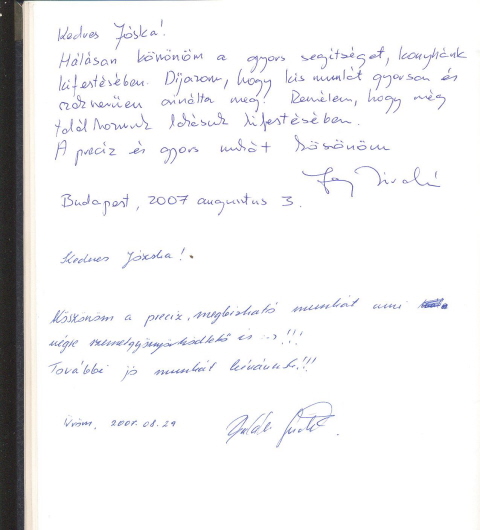 Kedves Jóska!
Hálásan köszönöm a gyors segítséget, konyhánk
kifestésében. Díjazom, hogy kis munkát gyorsan és
szakszerűen csinálta meg! Remélem, hogy még
találkozunk lakásunk kifestésében.
A precíz és gyors munkát köszönöm
Budapest, 2007 augusztus 3.
Kedves Józska!
Köszönöm a precíz, megbízható munkát ami
végre
További jó munkát kívánunk!!!
Üröm, 08.29